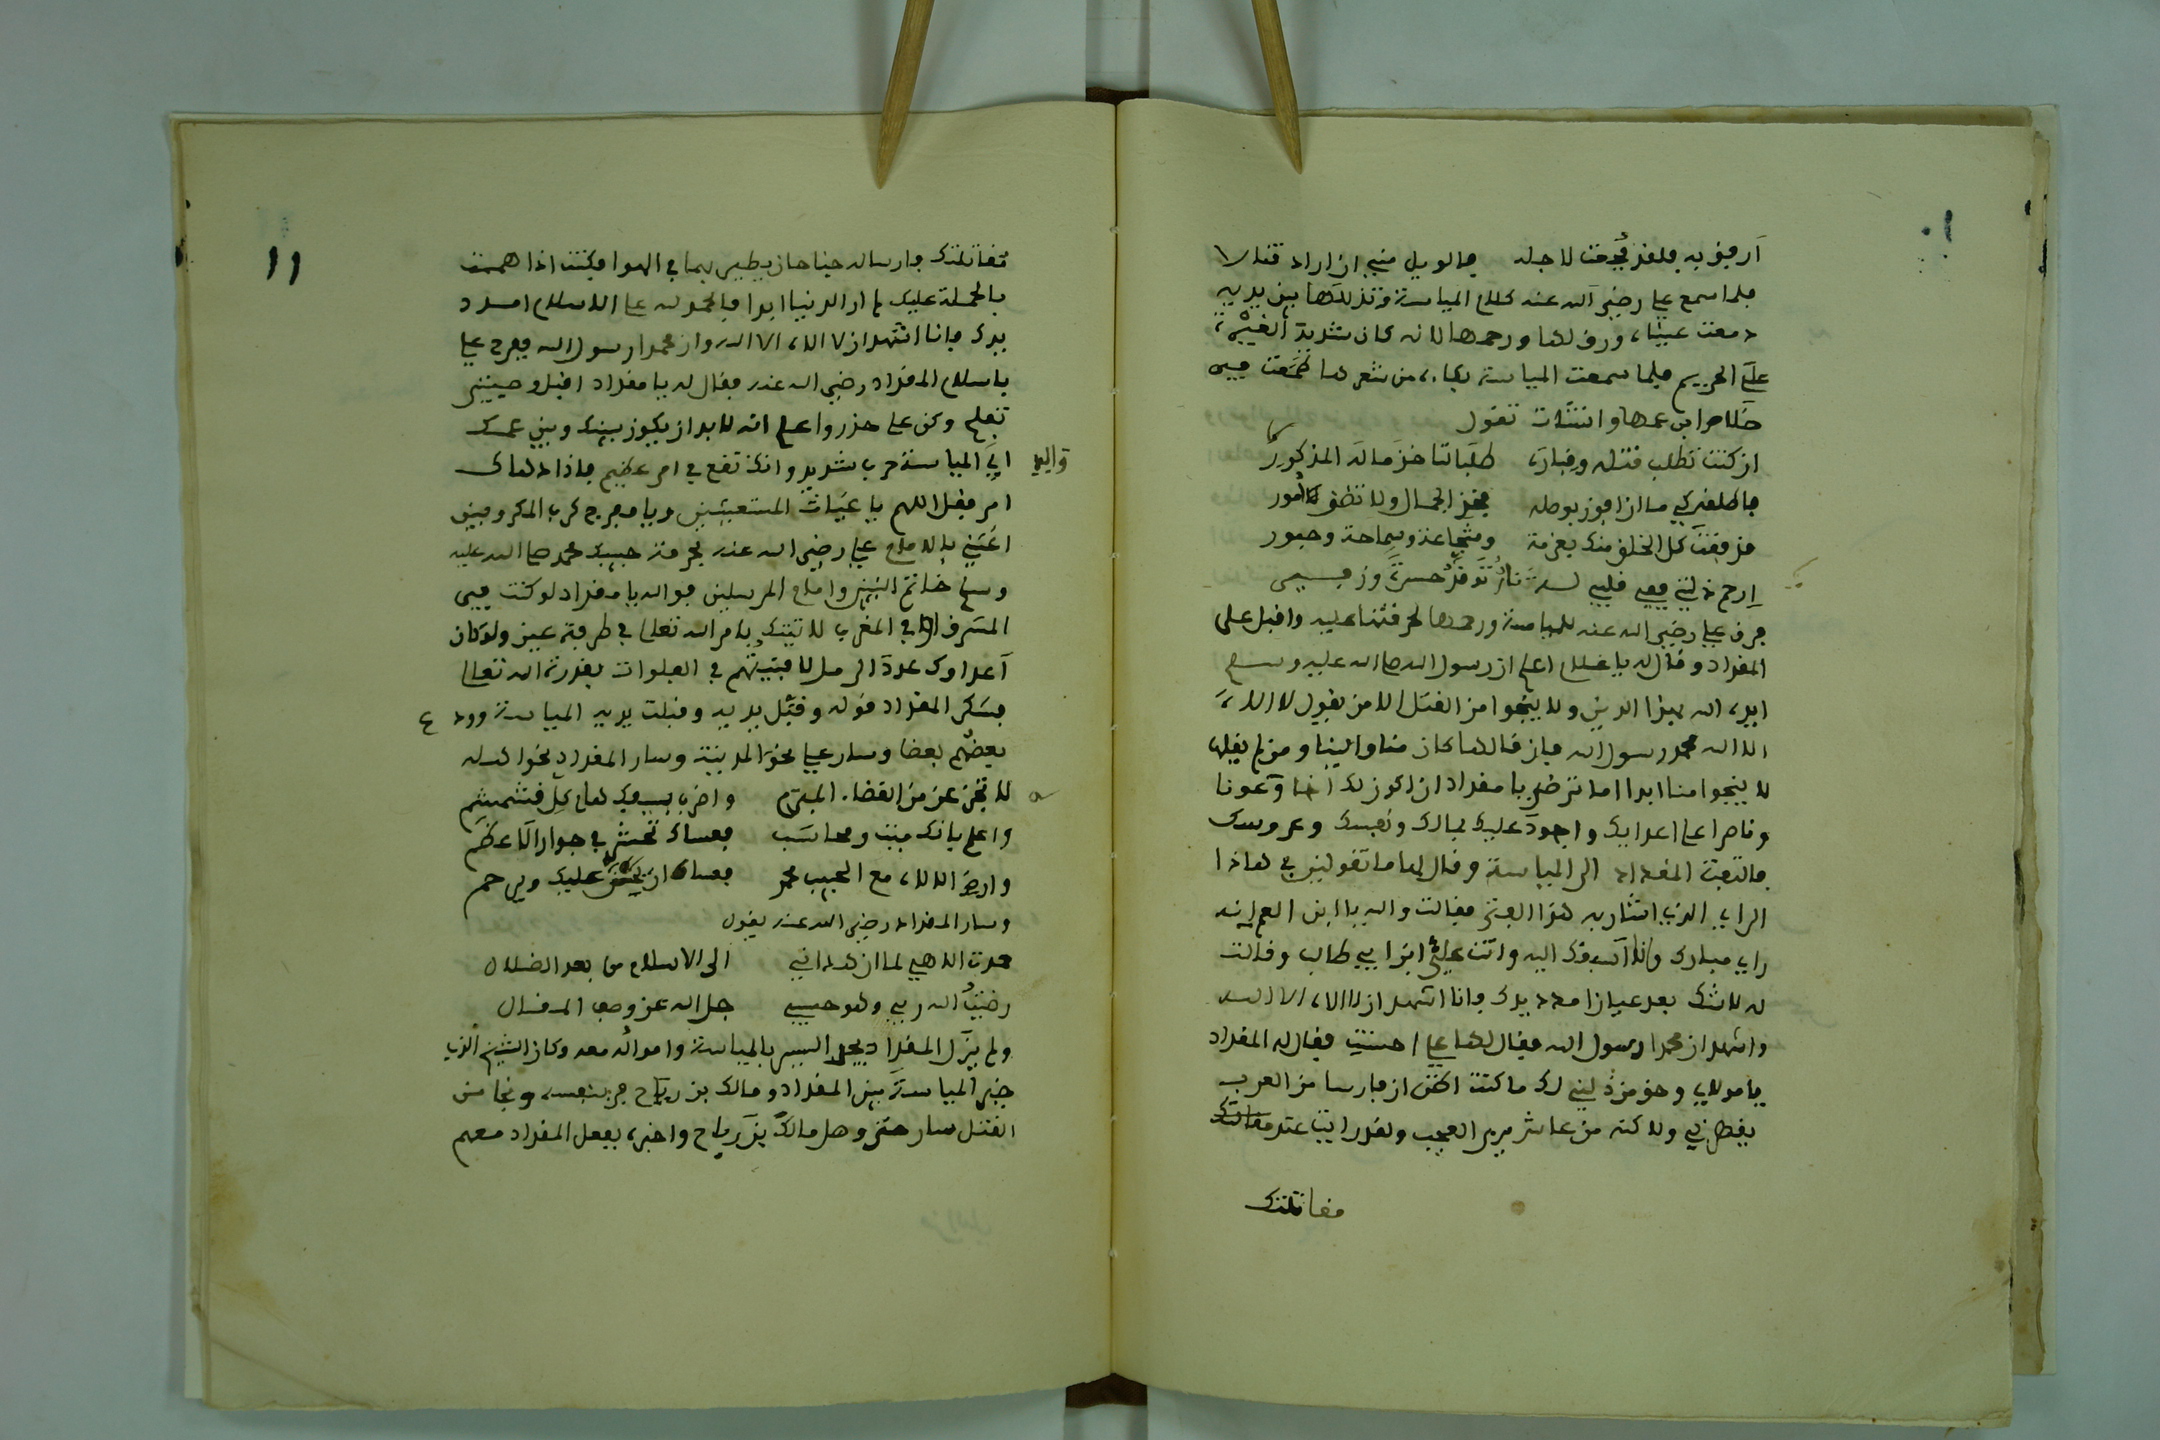 ارفق به فلقد فجعت لاجله فالويل مني ان اراد قتالا
فلما سمع علي رضي الله عنه كلام المياسة وتذللها بين يديه
دمعت عيناه ورق لها ورحمها لانه كان شديد الغيرة
على الحريم فلما سمعت المياسة بكاءه من شعرها طمعت في
خلاص ابن عمها وانشات تقول
ان كنت تطلب قتله وفناءه طلباتنا خذ ماله المذكور
فاطلقه لي
قد فقت كل الخلق منك بعزمة وشجاعة وسماحة وحبور
ارحم ذلتي ففي قلبي له نار توقد حسرة وزفير
فرق علي رضي الله عنه للمياسة ورحمها لحرقتها عليه واقبل على
المقداد وقال له يا غلام اعلم ان رسول الله صلى الله عليه وسلم
ايده الله بهذا الدين ولا ينجوا من القتل الا من يقول لا اله
الا الله محمد رسول الله فان قالها كان منا والينا ومن لم يقلها
لا ينجوا منا ابدا اما ترضى يا مقداد ان اكون لك اخا وعونا
وناصرا على اعدايك واجود عليك بمالك ونفسك وعروسك
فالتفت المقداد الى المياسة وقال لها ما تقولين في هاذا
الراي الذي اشار به هذا الفتى فقالت والله يا ابن العم انه
راي مبارك وانا اسبقك اليه وانت علي ابن ابي طالب وقالت
له لا شك بعد عيان امدد يدك فانا اشهد ان لا اله الا الله
واشهد ان محمدا رسول الله فقال لها علي احسنت فقال له المقداد
يا مولاي وحق من ذللني لك ما كنت اظن ان فارسا من العرب
يفضل بي ولاكنه من عاش يرى العجب ولقد رايت عند مقاتلتك
مقاتلتك
١١
مقاتلتك فارسا له جناحان يطير بهما في الهوا فكنت اذا هممت
بالحملة عليك لم ار الدنيا ابدا فالحمد لله على الاسلام امدد
يدك فانا اشهد ان لا اله الا الله وان محمدا رسول الله ففرح علي
باسلام المقداد رضي الله عنه فقال له يا مقداد اقبل وصيتي
تفلح وكن على حذر واعلم انه لا بد ان يكون بينك وبين عمك
ابي المياسة حرب شديد وانك تقع في امر عظيم فاذا دهاك
والي
امر فقل اللهم يا غياث المستغيثين ويا مفرج كرب المكروبين
اغثني بالامام علي رضي الله عنه بحرمة حبيبك محمد صلى الله عليه
وسلم خاتم النبيين وامام المرسلين فوالله يا مقداد لو كنت في
المشرق او في المغرب لاتيتك بامر الله تعالى في طرفة عين ولو كان
اعداوك عدة الرمل لافنيتهم في الفلوات بقدرة الله تعالى
فشكر المقداد قوله وقبل يديه وقبلت يديه المياسة وودع
بعضهم بعضا وسار علي نحو المدينة وسار المقداد نحوا هله
لا تجزعن من القضاء المبرم واضرب بسيفك هام كل غشمشم
واعلم بانك ميت ومحاسب فعساك تحشر في جوار الاعظم
وارض الاله مع الحبيب محمد فعساه ان عليك ويرحم
وسار المقداد رضي الله عنه يقول
حمدت الاهي لما ان هداني الى الاسلام من بعد الضلال
رضيت الله ربي وهو حسبي جل الله عن وصف المقال
ولم يزل المقداد يجد السير بالمياسة وامواله معه وكان الشيخ الذي
خير المياسة بين المقداد ومالك بن رياح فر بنفسه ونجا من
القتل سار حتى وصل مالك بن رياح واخبره بفعل المقداد معهم